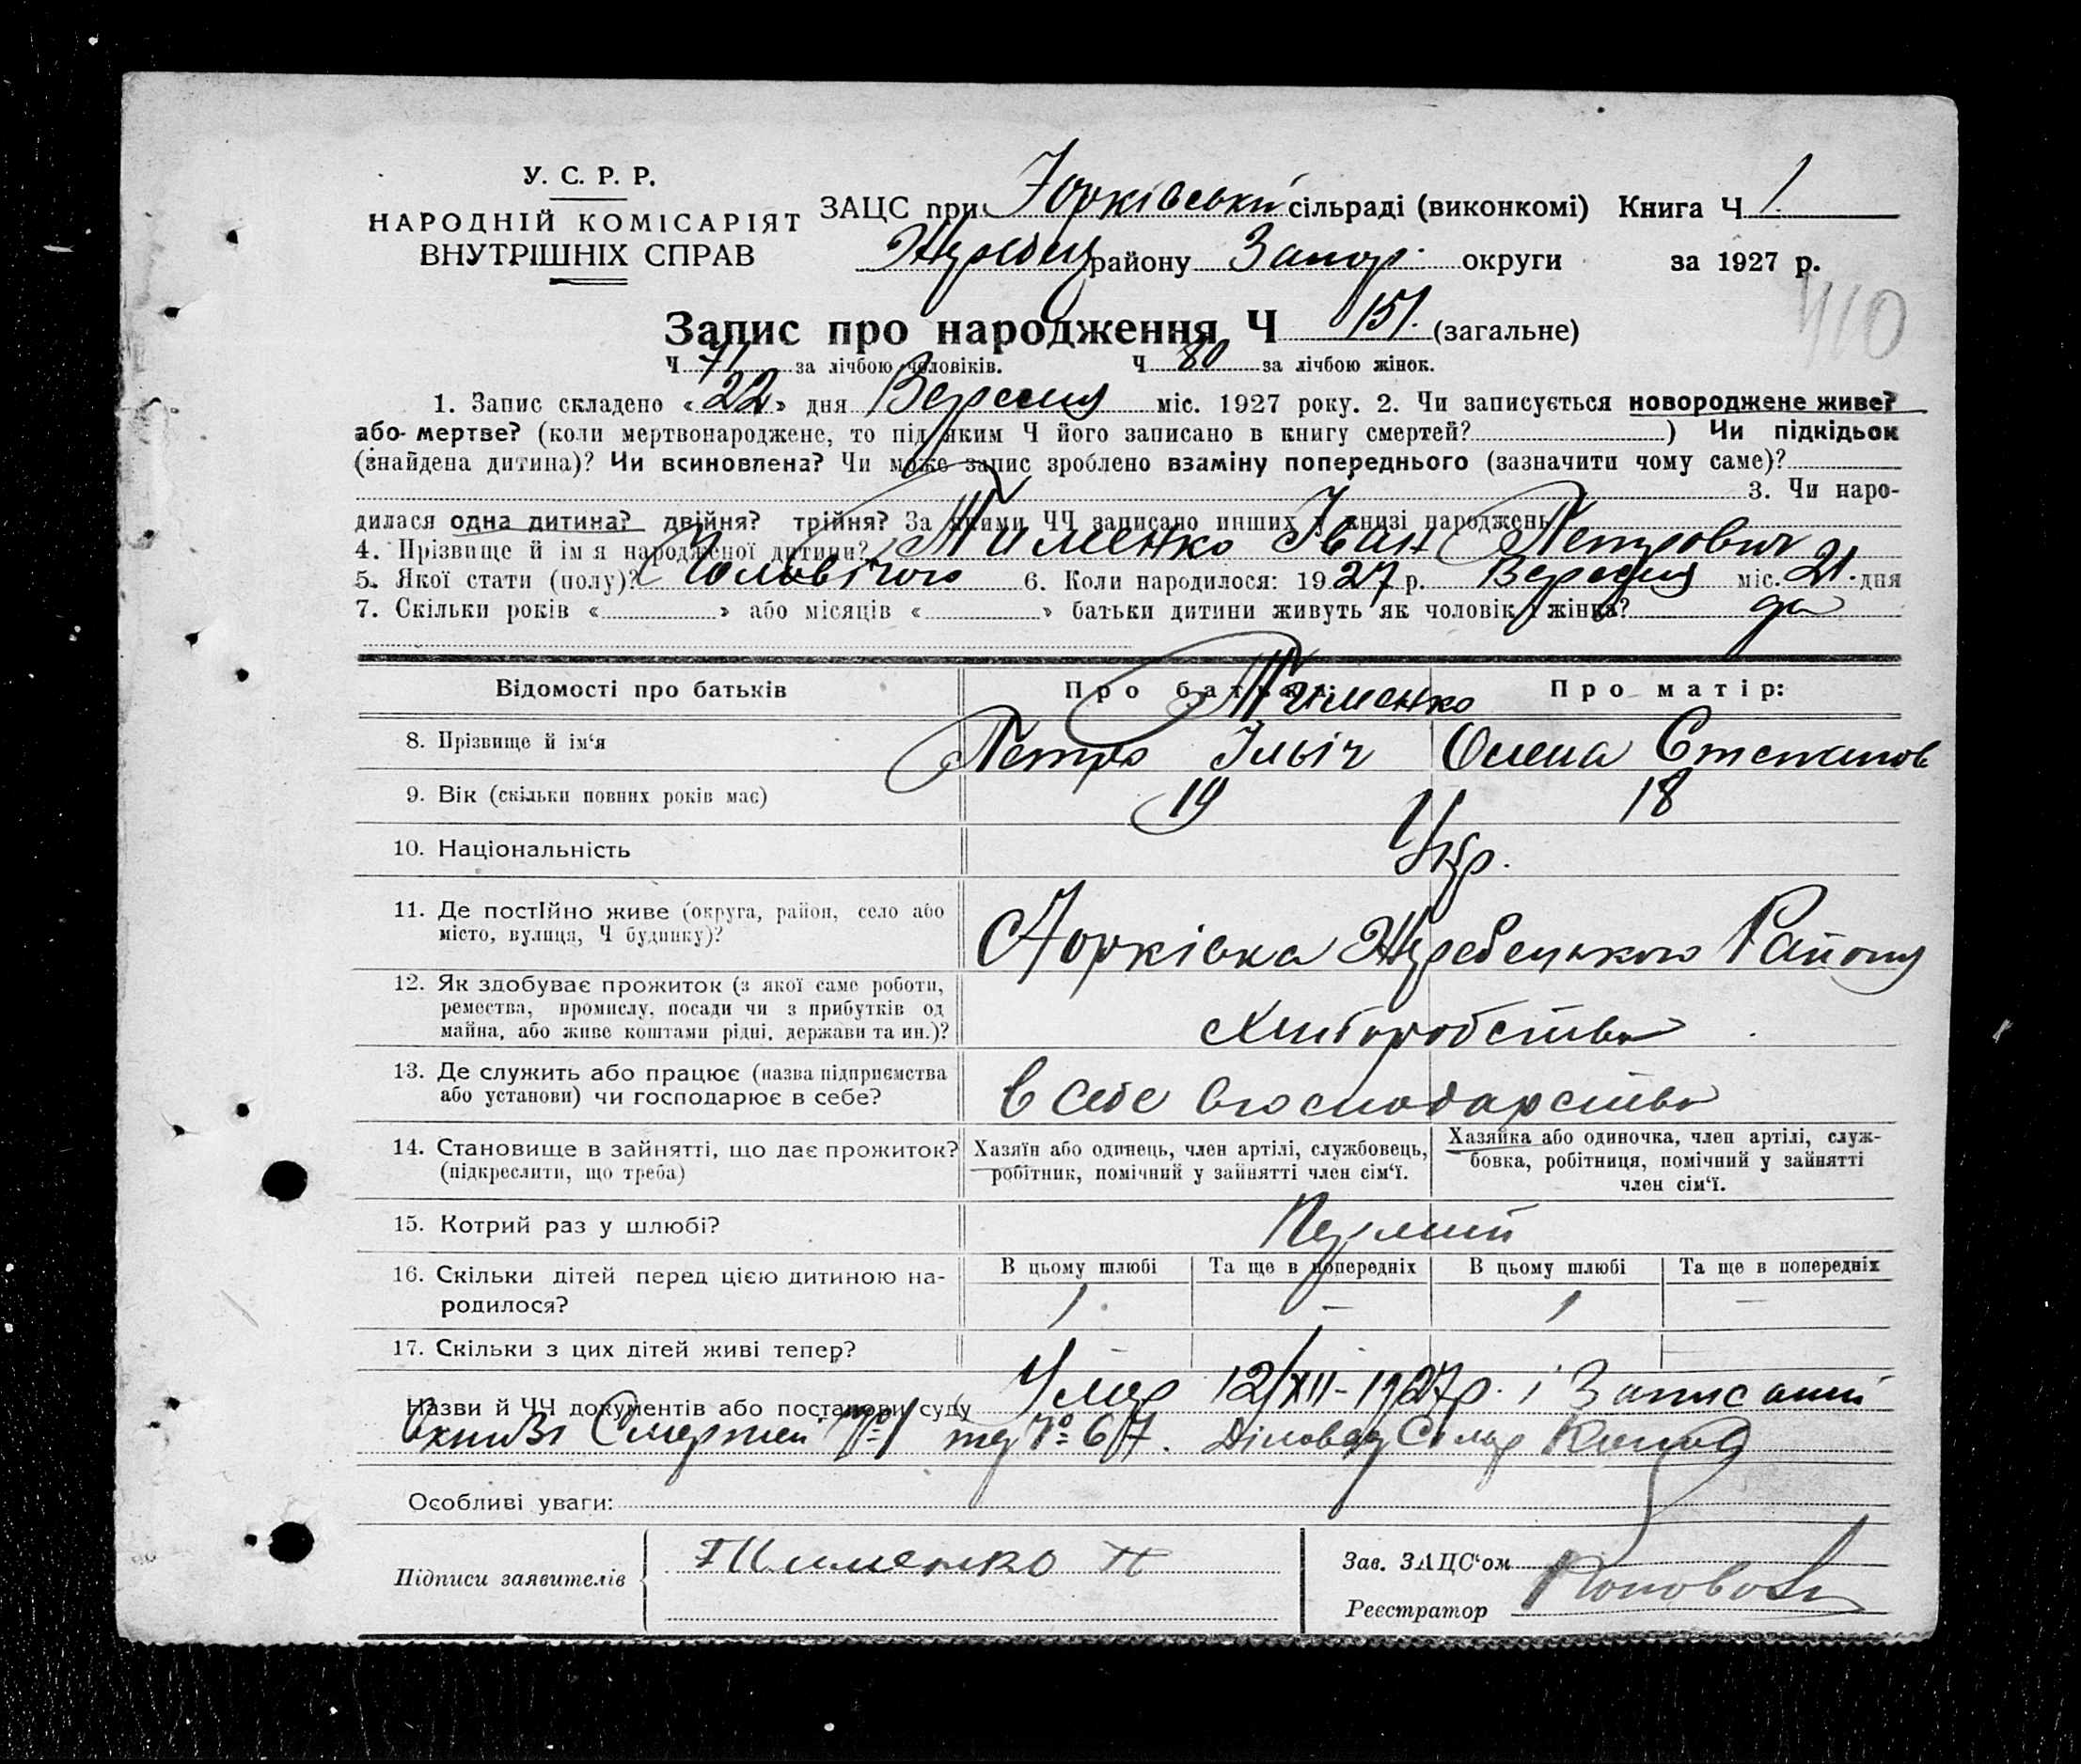 У. С. Р. Р.
НАРОДНІЙ КОМІСАРІЯТ
ВНУТРІШНІХ СПРАВ
ЗАЦС при Юрківській сільраді (виконкомі) Книга Ч 1.
Жеребец району Запор. округи за 1927 р.
410
Запис про народження Ч 151. (загальне)
Ч 71 за лічбою чоловіків. Ч 80 за лічбою жінок.
1. Запис складено «22» дня Вересня міс. 1927 року. 2. Чи записується новороджене живе?
або мертве? (коли мертвонароджене, то під яким Ч його записано в книгу смертей?) Чи підкідьок
(знайдена дитина)? Чи всиновлена? Чи може запис зроблено взаміну попереднього (зазначити чому саме)?
3. Чи наро-
дилася одна дитина? двійня? трійня? За якими ЧЧ записано инших у книзі народжень
4. Прізвище й ім я народженої дитини? Тименко Іван Петрович
5. Якої стати (полу)? Чоловічого 6. Коли народилося: 1927 р. Вересня міс. 21. дня
7. Скільки років « » або місяців « » батьки дитини живуть як чоловік і жінка? да
Відомості про батьків Про батька: Про матір:
Тименко
8. Прізвище й ім'я Петро Ільіч Олена Степанов
9. Вік (скільки повних років має) 19 18
10. Національність Укр.
11. Де постійно живе (округа, район, село або
місто, вулиця, Ч будинку)? Юрківка Жеребецького Району
12. Як здобуває прожиток (з якої саме роботи,
ремества, промислу, посади чи з прибутків од
майна, або живе коштами рідні, держави та ин.)? Хліборобство
13. Де служить або працює (назва підприємства
або установи) чи господарює в себе? В себе в господарстві
14. Становище в зайнятті, що дає прожиток?
(підкреслити, що треба)
Хазяїн або одинець, член артілі, службовець,
робітник, помічний у зайнятті член сім'ї.
Хазяйка або одиночка, член артілі, служ-
бовка, робітниця, помічний у зайнятті
член сім'ї.
15. Котрий раз у шлюбі? Перший
16. Скільки дітей перед цією дитиною на-
родилося?
В цьому шлюбі Та ще в попередніх В цьому шлюбі Та ще в попередніх
1. – 1 –
17. Скільки з цих дітей живі тепер?
Назви й ЧЧ документів або постанови суду Умер 12/XII-1927 р. і Записаний
В книзі Смертей № 1 під № 67. Діловод
Особливі уваги:
Підписи заявителів Тименко П
Зав. ЗАЦС'ом
Реєстратор